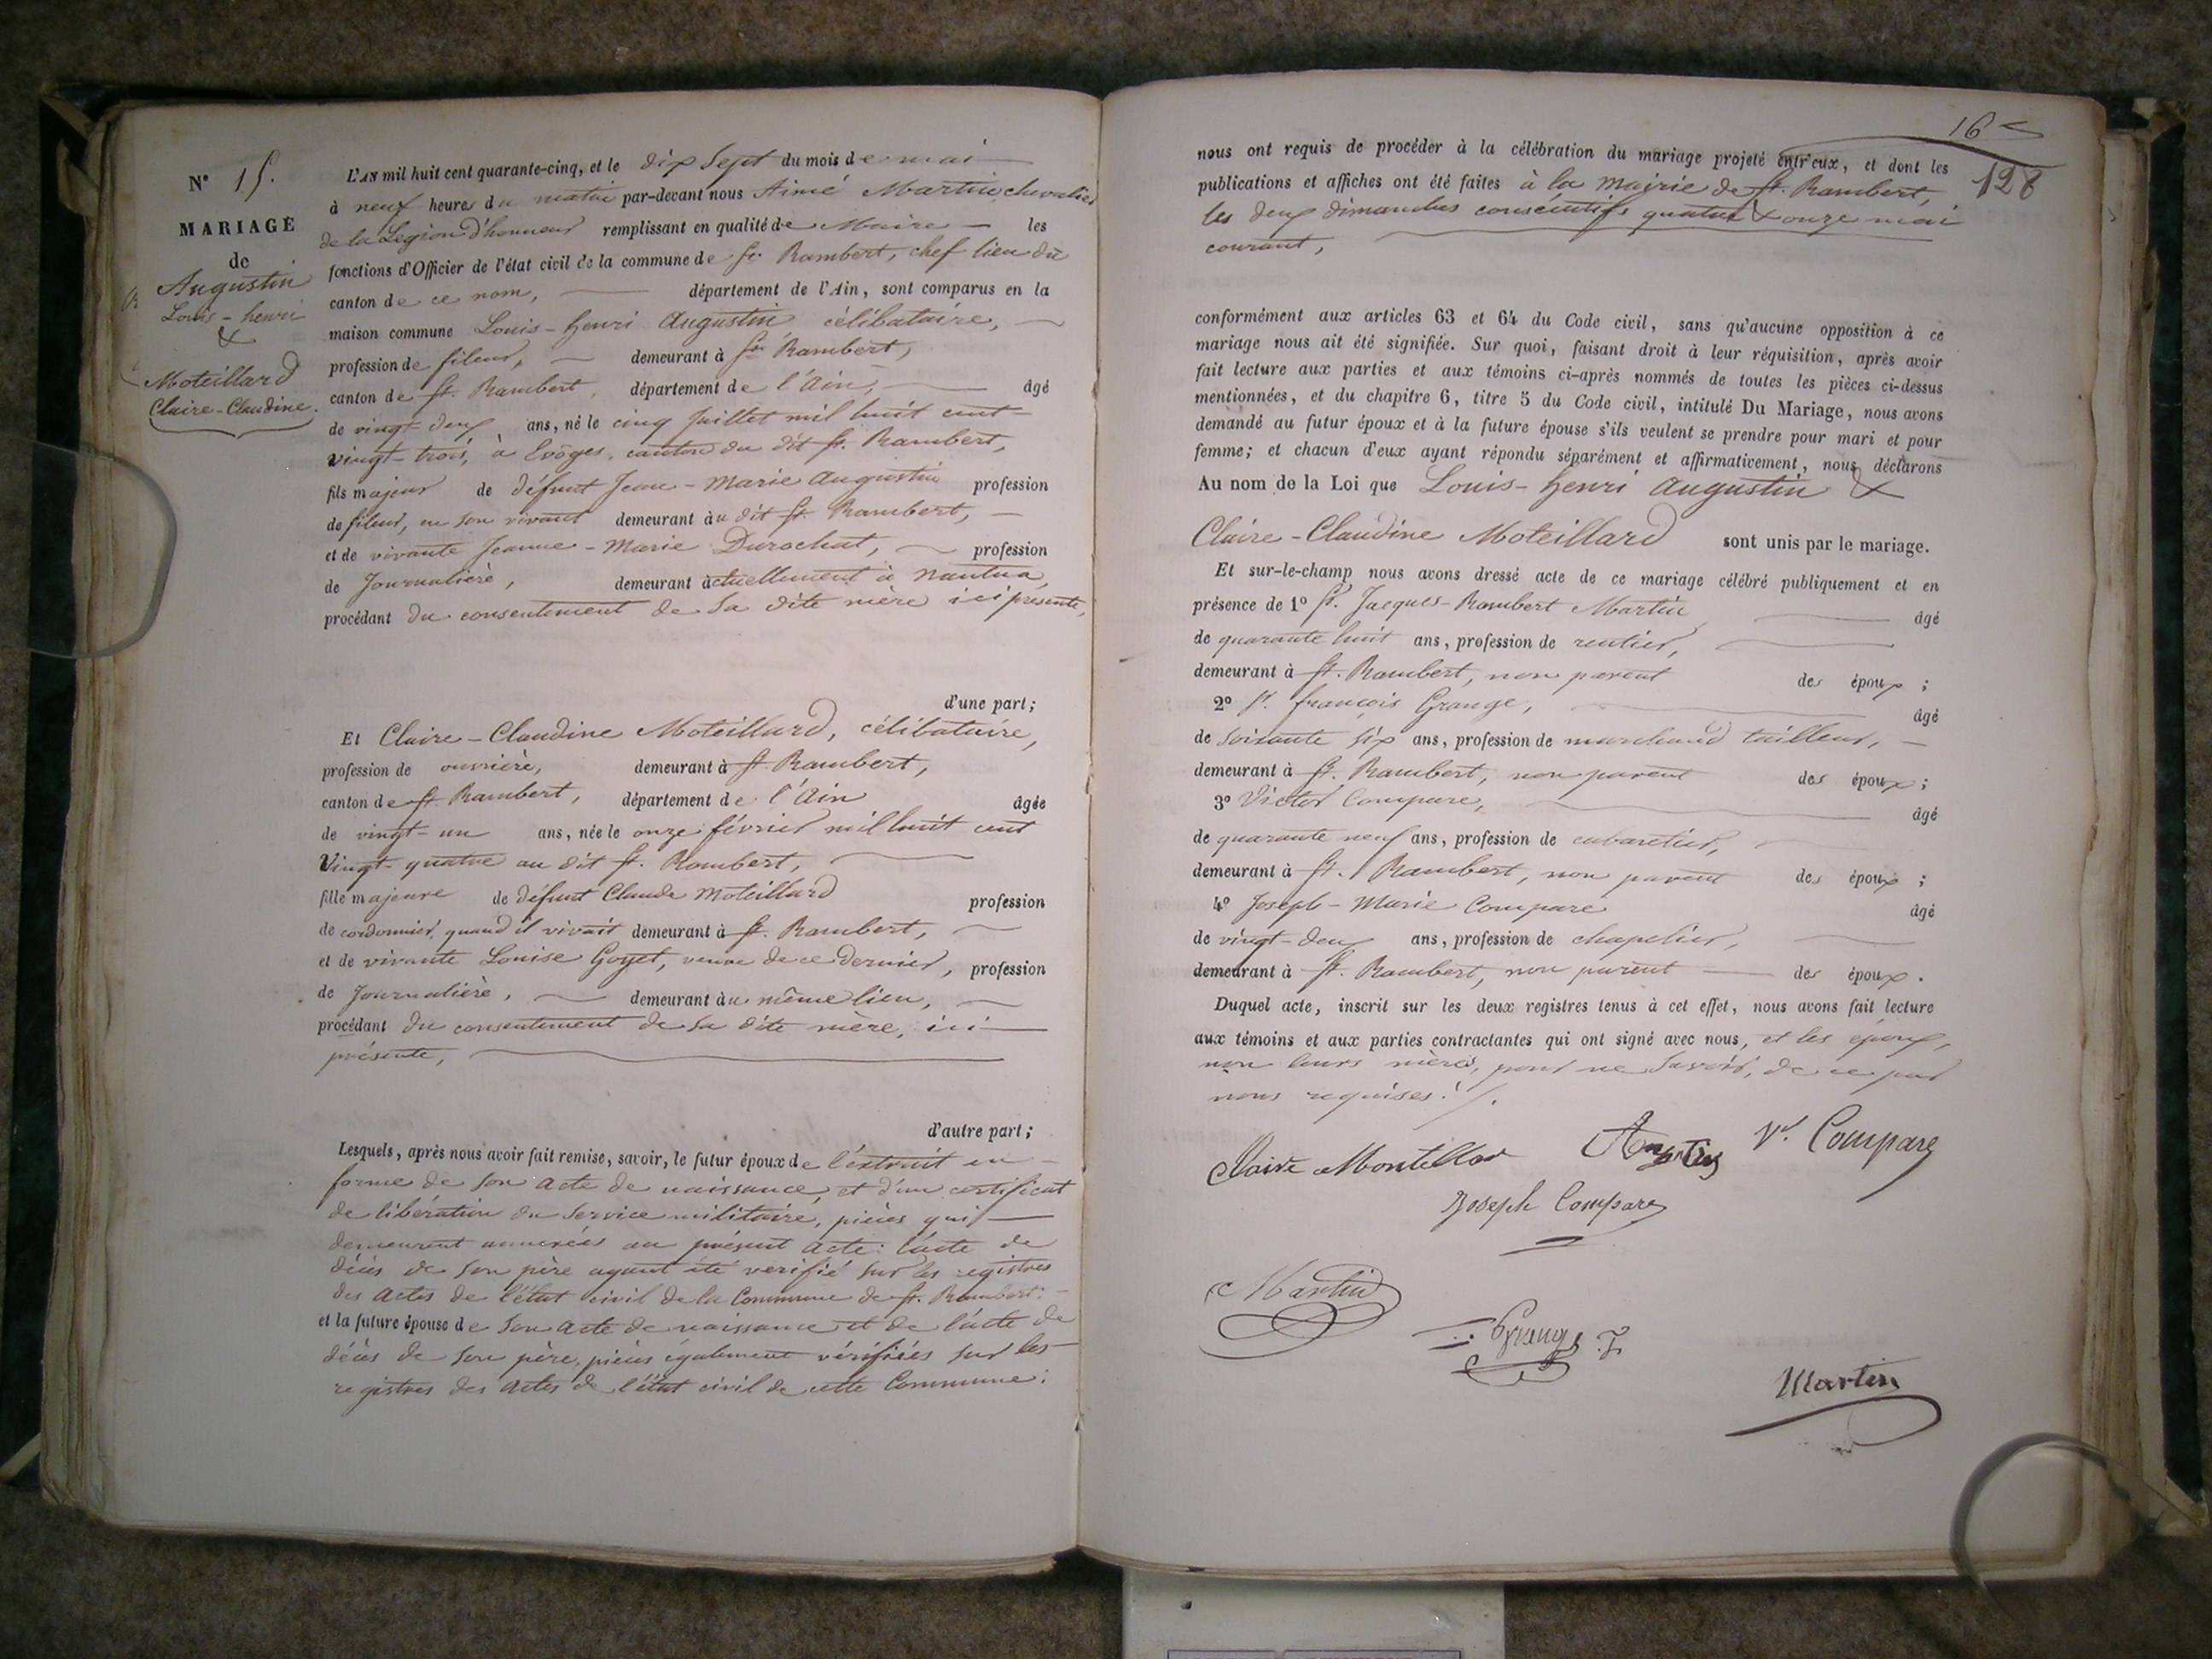 N° 15.
MARIAGE
de
Augustin
Louis-henri
&
Moteillard
Claire-Claudine.
L'AN mil huit cent quarante-cinq, et le dix Sept du mois de mai
à neuf heures du matin par-devant nous Aimé Martin, chevalier
de la Légion d'honneur remplissant en qualité de Maire les
fonctions d'Officier de l'état civil de la commune de St. Rambert, chef lieu du
canton de ce nom, département de l'Ain, sont comparus en la
maison commune Louis-henri Augustin célibataire,
profession de fileur, demeurant à St. Rambert,
canton de St. Rambert, département de l'Ain, âgé
de vingt-deux ans, né le cinq Juillet mil huit cent
vingt-trois, à Evôges, canton du dit St. Rambert,
fils majeur de défunt Jean-Marie Augustin profession
de fileur, en son vivant demeurant au dit St. Rambert,
et de vivante Jeanne-Marie Durochat, profession
de Journalière, demeurant actuellement à Nantua,
procédant du consentement de Sa dite mère ici présente,
d'une part;
Et Claire-Claudine Moteillard, célibataire,
profession de ouvrière, demeurant à St. Rambert,
canton de St. Rambert, département de l'Ain âgée
de vingt-un ans, née le onze février mil huit cent
Vingt-quatre au dit St. Rambert,
fille majeure de défunt Claude Moteillard profession
de cordonnier, quand il vivait demeurant à St. Rambert,
et de vivante Louise Goyet, veuve de ce dernier, profession
de Journalière, demeurant au même lieu,
procédant du consentement de Sa dite mère, ici
présente,
d'autre part;
Lesquels, après nous avoir fait remise, savoir, le futur époux de l'extrait en
forme de Son acte de naissance, et d'un certificat
de libération du Service militaire, pièces qui
demeurent annexées au présent acte: l'acte de
décès de Son père ayant été vérifié sur les registres
des actes de l'état civil de la Commune de St. Rambert:
et la future épouse de Son acte de naissance et de l'acte de
décès de Son père, pièces également vérifiées sur les
registres des actes de l'état civil de cette Commune:
16
128
nous ont requis de procéder à la célébration du mariage projeté entr'eux, et dont les
publications et affiches ont été faites à la Mairie de St. Rambert,
les deux dimanches consécutifs quatre & onze mai
courant,
conformément aux articles 63 et 64 du Code civil, sans qu'aucune opposition à ce
mariage nous ait été signifiée. Sur quoi, faisant droit à leur réquisition, après avoir
fait lecture aux parties et aux témoins ci-après nommés de toutes les pièces ci-dessus
mentionnées, et du chapitre 6, titre 5 du Code civil, intitulé Du Mariage, nous avons
demandé au futur époux et à la future épouse s'ils veulent se prendre pour mari et pour
femme; et chacun d'eux ayant répondu séparément et affirmativement, nous déclarons
Au nom de la Loi que Louis-henri Augustin &
Claire-Claudine Moteillard sont unis par le mariage.
Et sur-le-champ nous avons dressé acte de ce mariage célébré publiquement et en
présence de 1° Sr. Jacques-Rambert Martin âgé
de quarante huit ans, profession de rentier,
demeurant à St. Rambert, non parent des époux;
2° Sr. françois Grange, âgé
de Soixante Six ans, profession de marchand tailleur,
demeurant à St. Rambert, non parent des époux;
3° Victor Compare, âgé
de quarante neuf ans, profession de cabaretier,
demeurant à St. Rambert, non parent des époux;
4° Joseph-Marie Compare âgé
de vingt-deux ans, profession de chapelier,
demeurant à St. Rambert, non parent des époux.
Duquel acte, inscrit sur les deux registres tenus à cet effet, nous avons fait lecture
aux témoins et aux parties contractantes qui ont signé avec nous, et les époux,
non leurs mères, pour ne Savoir, de ce par
nous requises./.
Claire Montellar Augustin Vr. Compare
Joseph Compare
Martin
Grange F
Martin